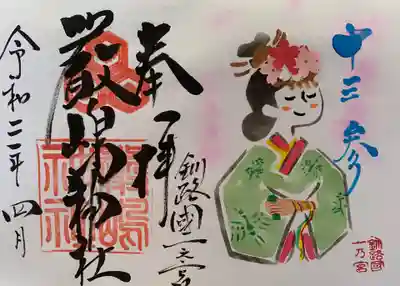 十三参り
奉拝
釧路國一之宮
厳島神社
令和二年四月
嚴嶋神社
釧路國
一乃宮